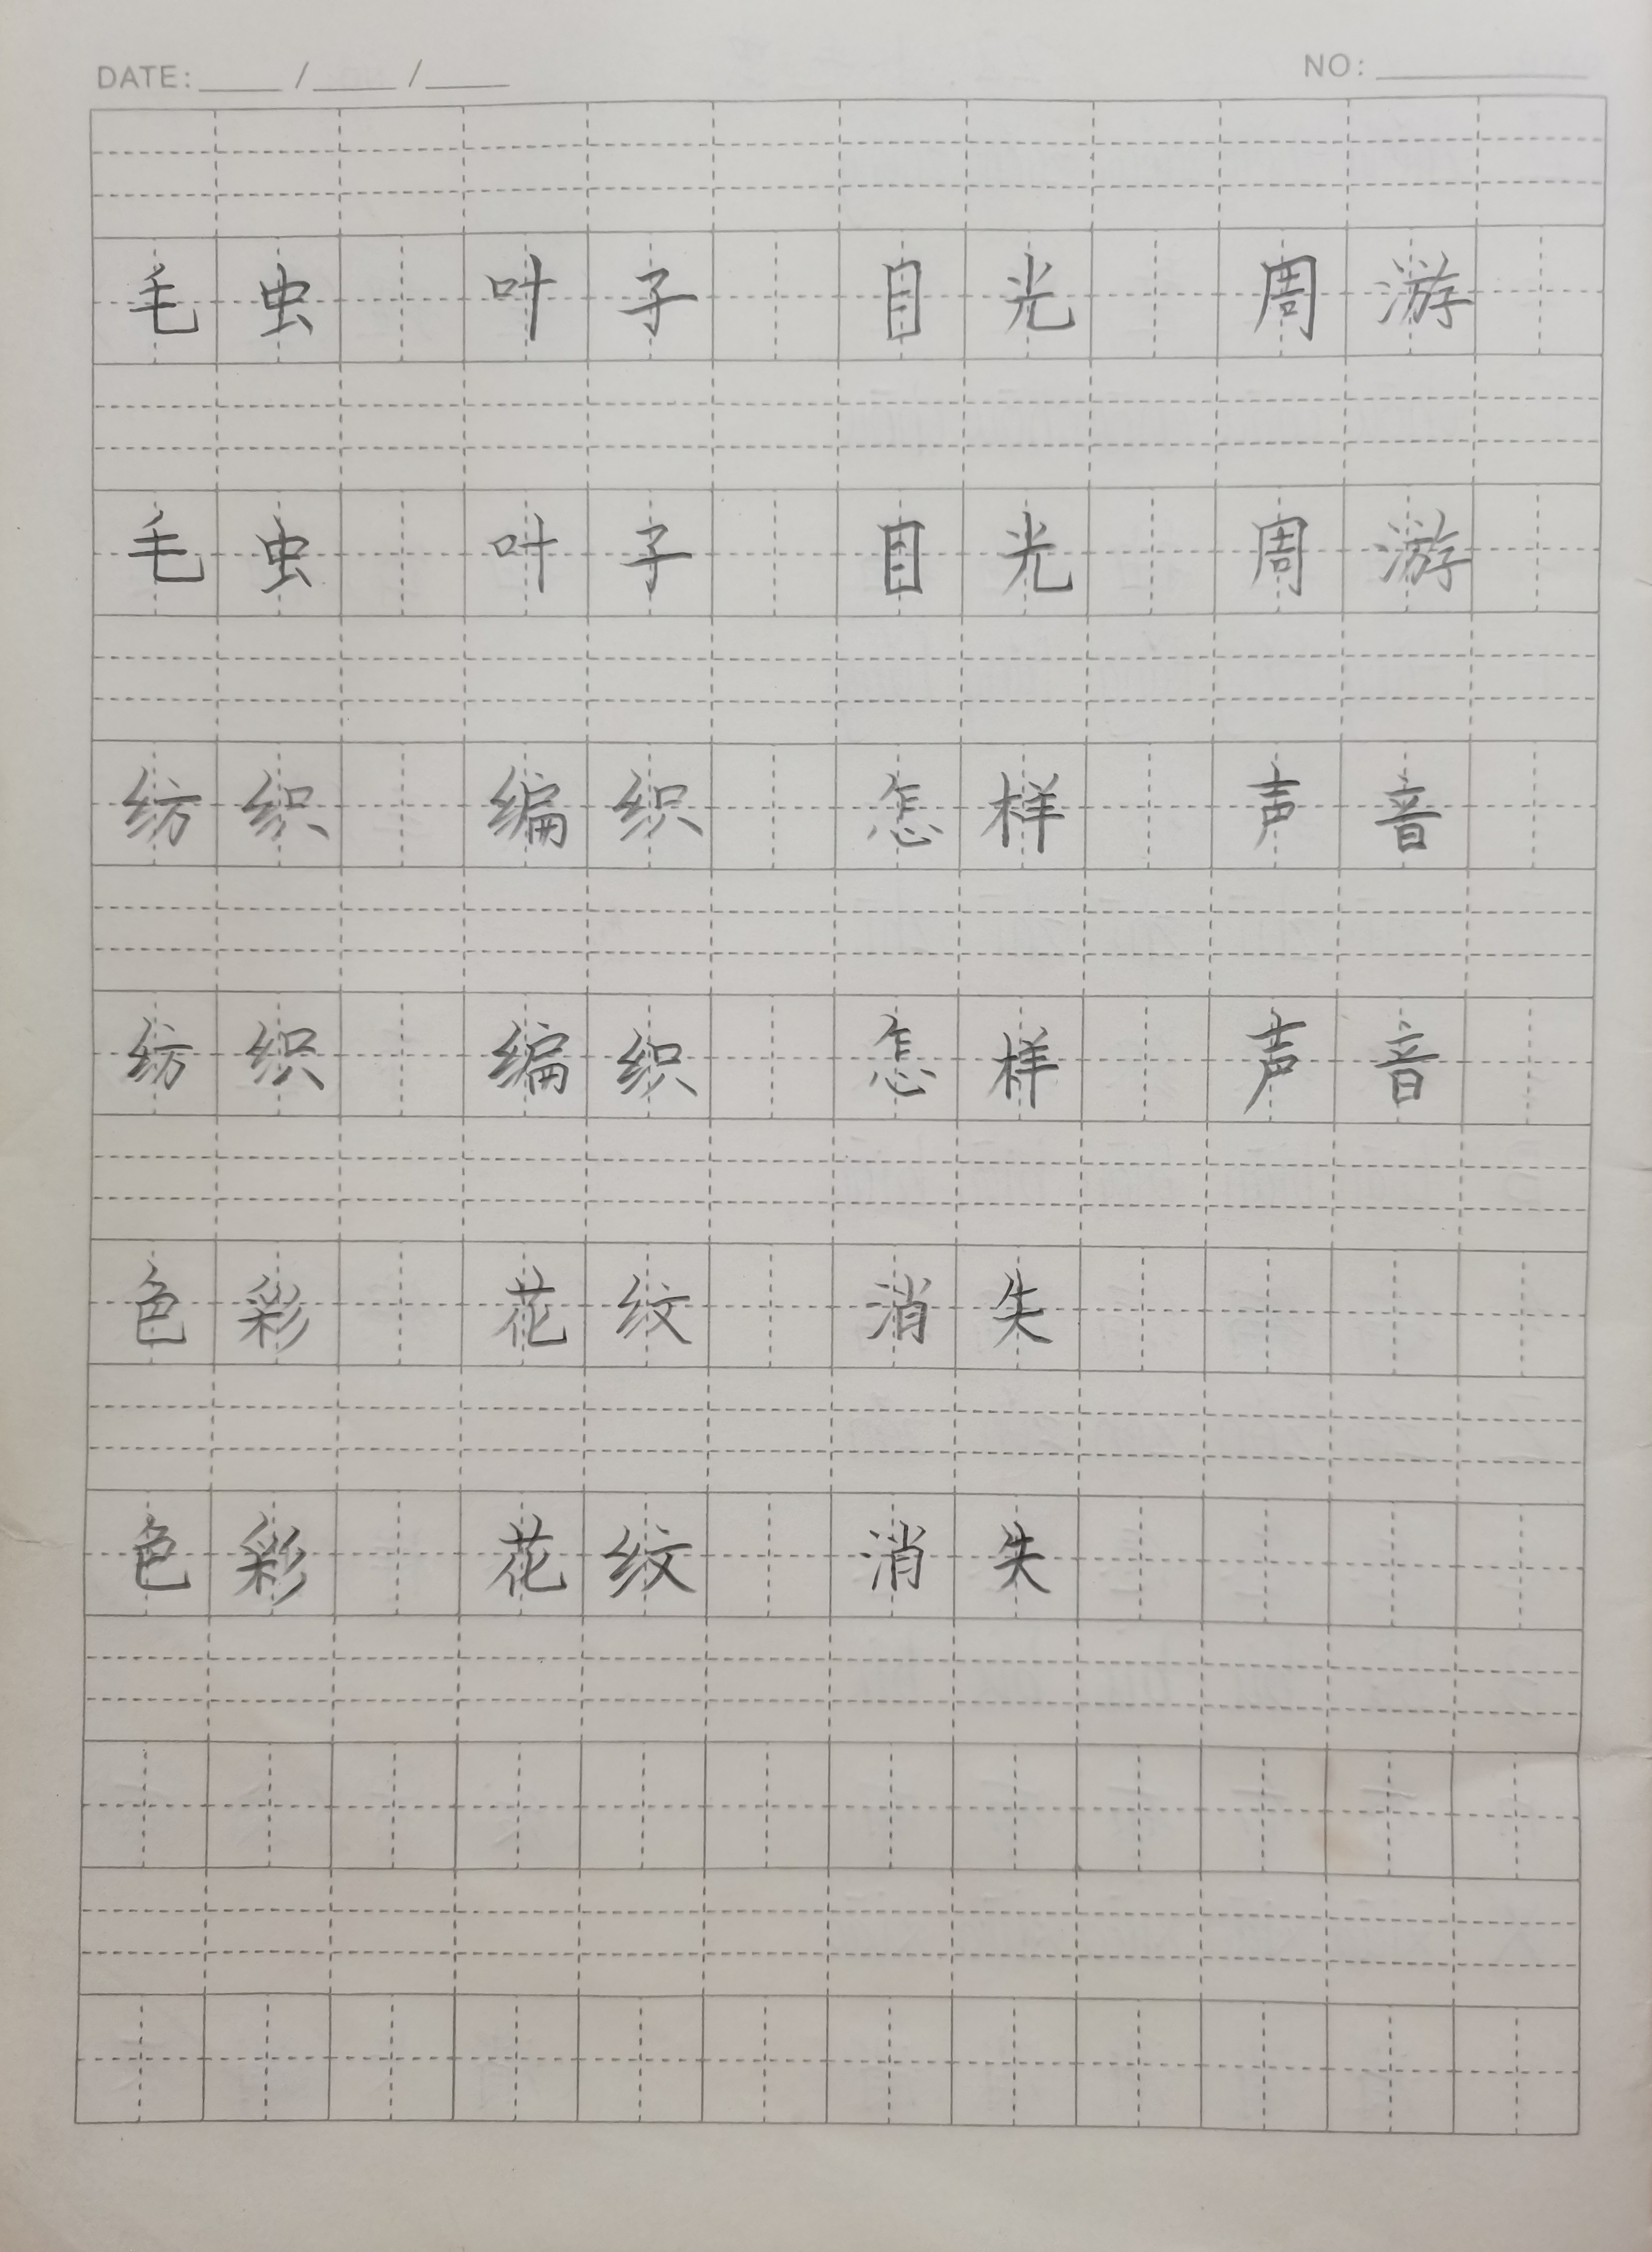 DATE: / / NO:
毛虫 叶子 目光 周游
毛虫 叶子 目光 周游
纺织 编织 怎样 声音
纺织 编织 怎样 声音
色彩 花纹 消失
色彩 花纹 消失